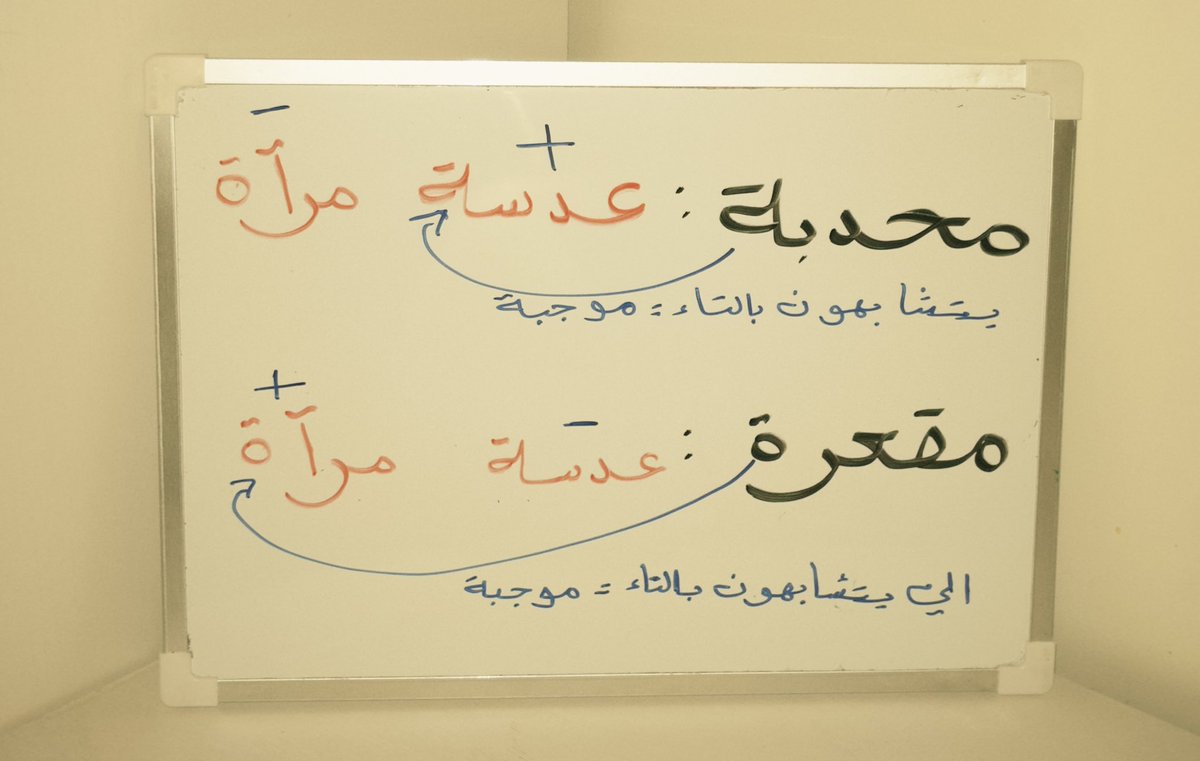 + −
محدبة : عدسة مرآة
يتشابهون بالتاء = موجبة
− +
مقعرة : عدسة مرآة
الي يتشابهون بالتاء = موجبة